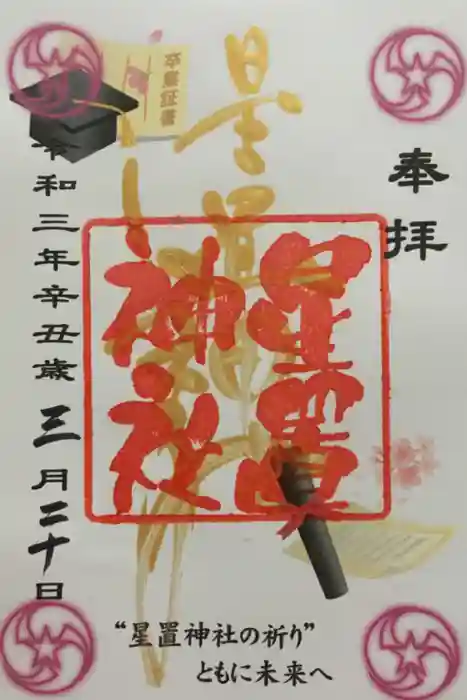 奉拝
星置
星置
神社
卒業証書
令和三年辛丑歳三月二十日
“星置神社の祈り”
ともに未来へ